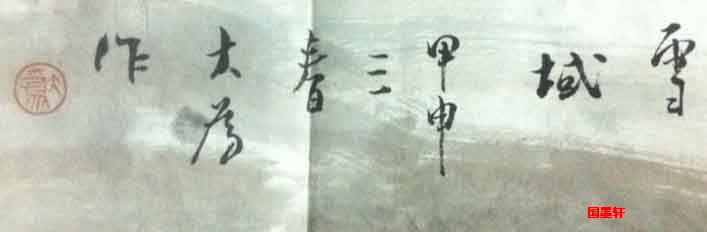 雪
域
甲申
三
春
大為
作
国墨轩